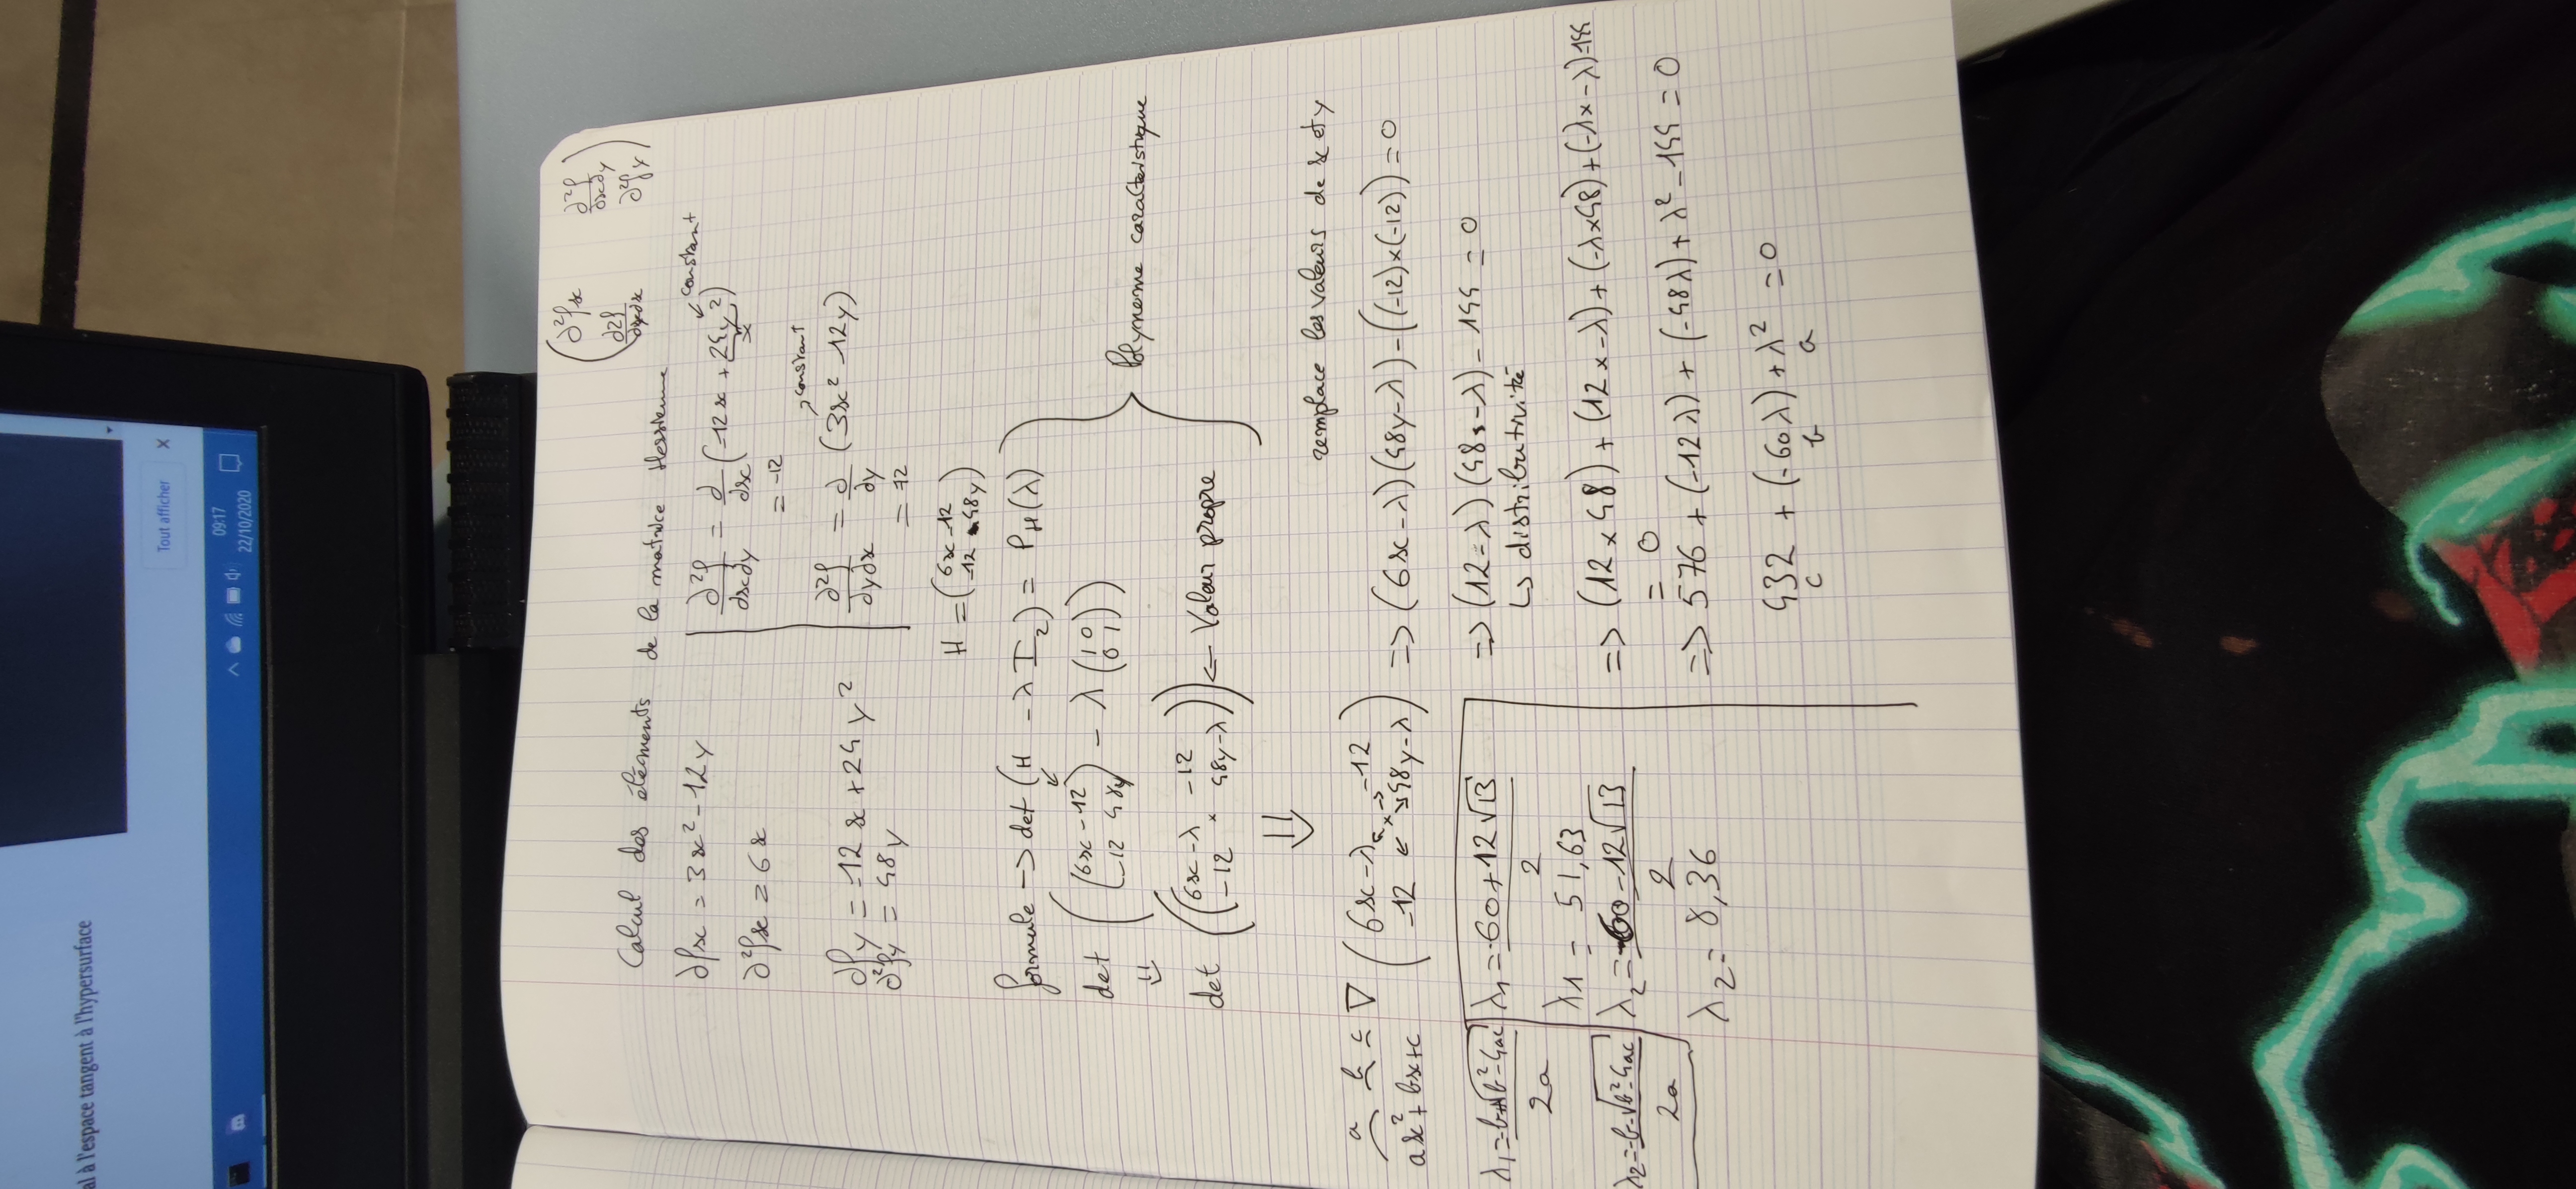 al à l'espace tangent à l'hypersurface
Tout afficher X
09:17
22/10/2020
(∂²fx ∂²f/∂x∂y
∂2f/∂y∂x ∂²fy)
Calcul des éléments de la matrice Hessienne
∂fx = 3x² - 12y
∂²fx = 6x
∂fy = -12x + 24y²
∂²fy = 48y
constant
∂²f/∂x∂y = ∂/∂x (-12x + 24y²)
= -12
constant
∂²f/∂y∂x = ∂/∂y (3x² - 12y)
= -12
H = (6x -12
-12 48y)
formule -> det (H - λ I₂) = PH(λ)
det ((6x -12
-12 48y) - λ (1 0
0 1))
⇓
det ((6x-λ -12
-12 48y-λ)) <- Valeur propre
Polynome caracteristique
⇓
remplace les valeurs de x et y
a b c ∇
ax² + bx + c
(6x-λ -12
-12 48y-λ) => (6x-λ)(48y-λ) - ((-12)×(-12)) = 0
=> (12-λ)(48-λ) - 144 = 0
↳ distributivité
=> (12×48) + (12×-λ) + (-λ×48) + (-λ×-λ)-144
= 0
=> 576 + (-12λ) + (-48λ) + λ² - 144 = 0
432 + (-60λ) + λ² = 0
c b a
λ₁ = -b+√b²-4ac
2a
λ₂ = -b-√b²-4ac
2a
λ₁ = 60 + 12√13
2
λ1 = 51,63
λ₂ = 60 - 12√13
2
λ₂ = 8,36